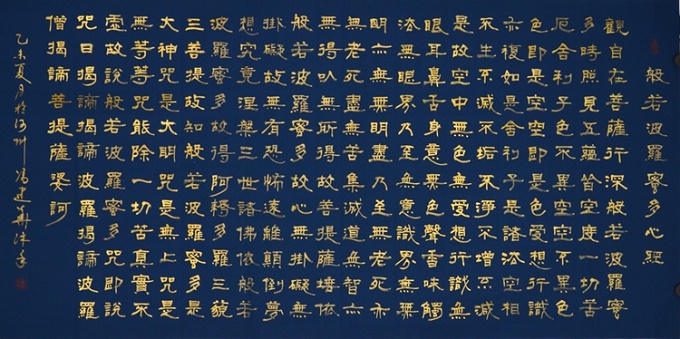 般若波羅蜜多心經
觀自在菩薩行深般若波羅蜜
多時照見五蘊皆空度一切苦
厄舍利子色不異空空不異色
色即是空空即是色受想行識
亦復如是舍利子是諸法空相
不生不滅不垢不淨不增不減
是故空中無色無受想行識無
眼耳鼻舌身意無色聲香味觸
法無眼界乃至無意識界無無
明亦無無明盡乃至無老死亦
無老死盡無苦集滅道無智亦
無得以無所得故菩提薩埵依
般若波羅蜜多故心無掛礙無
掛礙故無有恐怖遠離顛倒夢
想究竟涅槃三世諸佛依般若
波羅蜜多故得阿耨多羅三藐
三菩提故知般若波羅蜜多是
大神咒是大明咒是無上咒是
無等等咒能除一切苦真實不
虛故說般若波羅蜜多咒即說
咒曰揭諦揭諦波羅揭諦波羅
僧揭諦菩提薩婆訶
乙未夏月於河州馮建華沐手